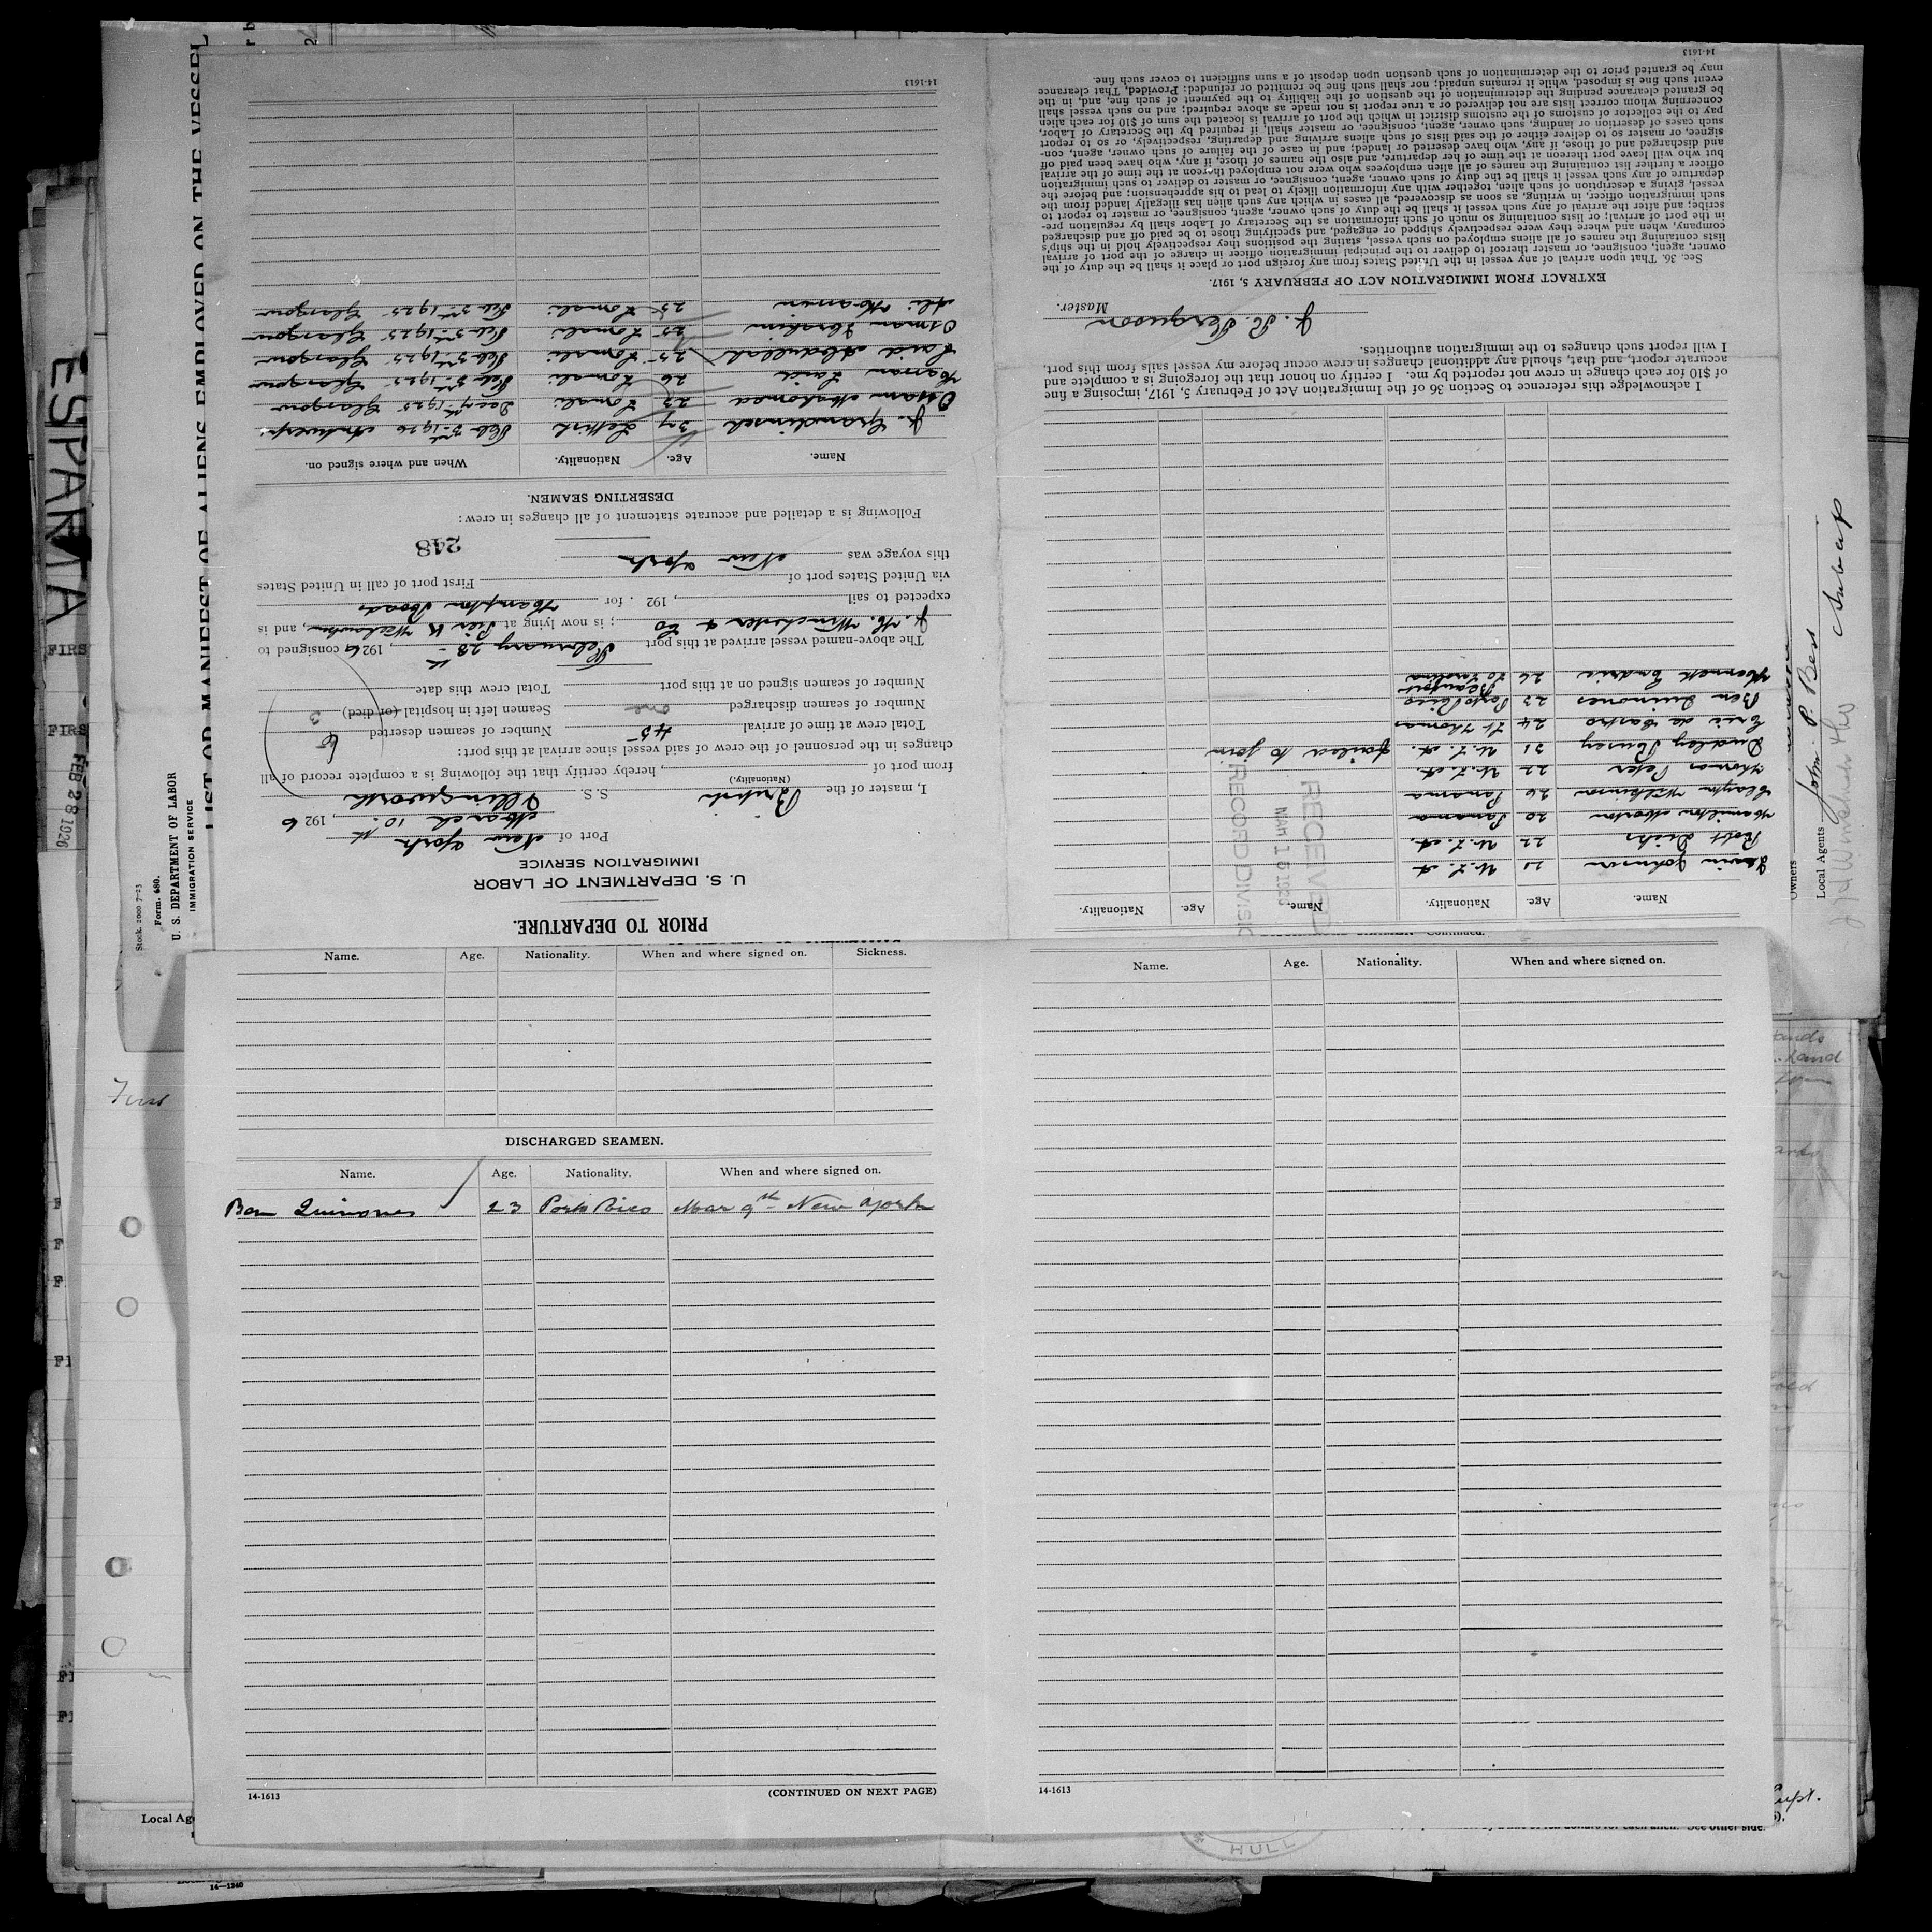 PRIOR TO DEPARTURE.
U. S. DEPARTMENT OF LABOR
IMMIGRATION SERVICE
Port of New York
March 10th, 1926
I, master of the British S. S. Illingworth
(Nationality.)
from port of , hereby certify that the following is a complete record of all
changes in the personnel of the crew of said vessel since arrival at this port:
Total crew at time of arrival 45 Number of seamen deserted 6
Number of seamen discharged one Seamen left in hospital (or died) 3
Number of seamen signed on at this port Total crew this date
The above-named vessel arrived at this port February 28th, 1926 consigned to
J. H. Winchester & Co ; is now lying at Pier K Weehawken, and is
expected to sail , 192 . for Hampton Roads
via United States port of First port of call in United States
this voyage was New York
248
Following is a detailed and accurate statement of all changes in crew:
DESERTING SEAMEN.
Name. Age. Nationality. When and where signed on.
37 Lettish Feb 3rd 1926 Antwerp.
Osman Mahomed 23 Somali 1925 Glasgow
Hassan Said 26 Somali 1925 Glasgow
Said Abdullah 25 Somali 1925 Glasgow
Osman Ibrahim 25 Somali 1925 Glasgow
Ali 25 Somali 1925 Glasgow
14-1613
Continued.
Name. Age. Nationality. Name. Age. Nationality.
Irwin Johnson 21 U.S.A.
Robt 22 U.S.A.
Hamilton Morton 20 Panama
Clayton Wilkinson 26 Panama
Thomas Peter 22 U.S.A.
Dudley 31 U.S.A. failed to join
Eric de Castro 24 St Thomas
Ben Quinones 23 Porto Rico
Kenneth 26 Beaufort So Carolina
RECEIVED
MAR 15 1926
RECORD DIVISIO
I acknowledge this reference to Section 36 of the Immigration Act of February 5, 1917, imposing a fine
of $10 for each change in crew not reported by me. I certify on honor that the foregoing is a complete and
accurate report, and that, should any additional changes in crew occur before my vessel sails from this port,
I will report such changes to the immigration authorities.
J. R. Ferguson
Master.
EXTRACT FROM IMMIGRATION ACT OF FEBRUARY 5, 1917.
Sec. 36. That upon arrival of any vessel in the United States from any foreign port or place it shall be the duty of the
owner, agent, consignee, or master thereof to deliver to the principal immigration officer in charge of the port of arrival
lists containing the names of all aliens employed on such vessel, stating the positions they respectively hold in the ship's
company, when and where they were respectively shipped or engaged, and specifying those to be paid off and discharged
in the port of arrival; or lists containing so much of such information as the Secretary of Labor shall by regulation pre-
scribe; and after the arrival of any such vessel it shall be the duty of such owner, agent, consignee, or master to report to
such immigration officer, in writing, as soon as discovered, all cases in which any such alien has illegally landed from the
vessel, giving a description of such alien, together with any information likely to lead to his apprehension; and before the
departure of any such vessel it shall be the duty of such owner, agent, consignee, or master to deliver to such immigration
officer a further list containing the names of all alien employees who were not employed thereon at the time of the arrival
but who will leave port thereon at the time of her departure, and also the names of those, if any, who have been paid off
and discharged and of those, if any, who have deserted or landed; and in case of the failure of such owner, agent, con-
signee, or master so to deliver either of the said lists of such aliens arriving and departing, respectively, or so to report
such cases of desertion or landing, such owner, agent, consignee, or master shall, if required by the Secretary of Labor,
pay to the collector of customs of the customs district in which the port of arrival is located the sum of $10 for each alien
concerning whom correct lists are not delivered or a true report is not made as above required; and no such vessel shall
be granted clearance pending the determination of the question of the liability to the payment of such fine, and, in the
event such fine is imposed, while it remains unpaid; nor shall such fine be remitted or refunded: Provided, That clearance
may be granted prior to the determination of such question upon deposit of a sum sufficient to cover such fine.
14-1613
Name. Age. Nationality. When and where signed on. Sickness.
DISCHARGED SEAMEN.
Name. Age. Nationality. When and where signed on.
Ben Quinones 23 Porto Rico Mar 9th New York
14-1613 (CONTINUED ON NEXT PAGE)
Name. Age. Nationality. When and where signed on.
14-1613
Stock. 2000 7-23
Form. 680.
U. S. DEPARTMENT OF LABOR
IMMIGRATION SERVICE
LIST OR MANIFEST OF ALIENS EMPLOYED ON THE VESSEL
ESPARTA
FIRS
FIRS
FEB 28 1926
First
Owners
Local Agents John. P. Bess
Local Age
HULL
See other side.
14-1240